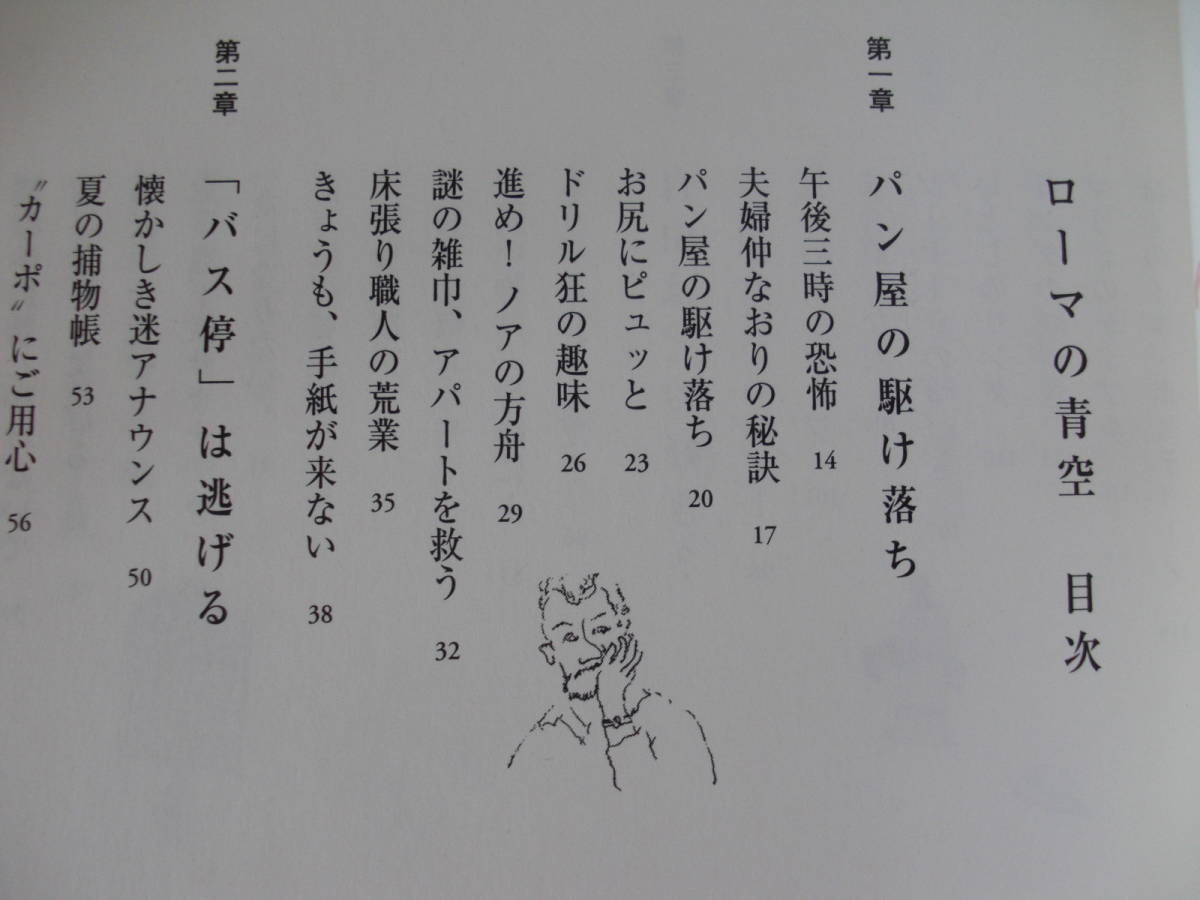 ローマの青空　目次
第一章　パン屋の駆け落ち
午後三時の恐怖　14
夫婦仲なおりの秘訣　17
パン屋の駆け落ち　20
お尻にピュッと　23
ドリル狂の趣味　26
進め！ノアの方舟　29
謎の雑巾、アパートを救う　32
床張り職人の荒業　35
きょうも、手紙が来ない　38
第二章　「バス停」は逃げる
懐かしき迷アナウンス　50
夏の捕物帳　53
〝カーポ〟にご用心　56